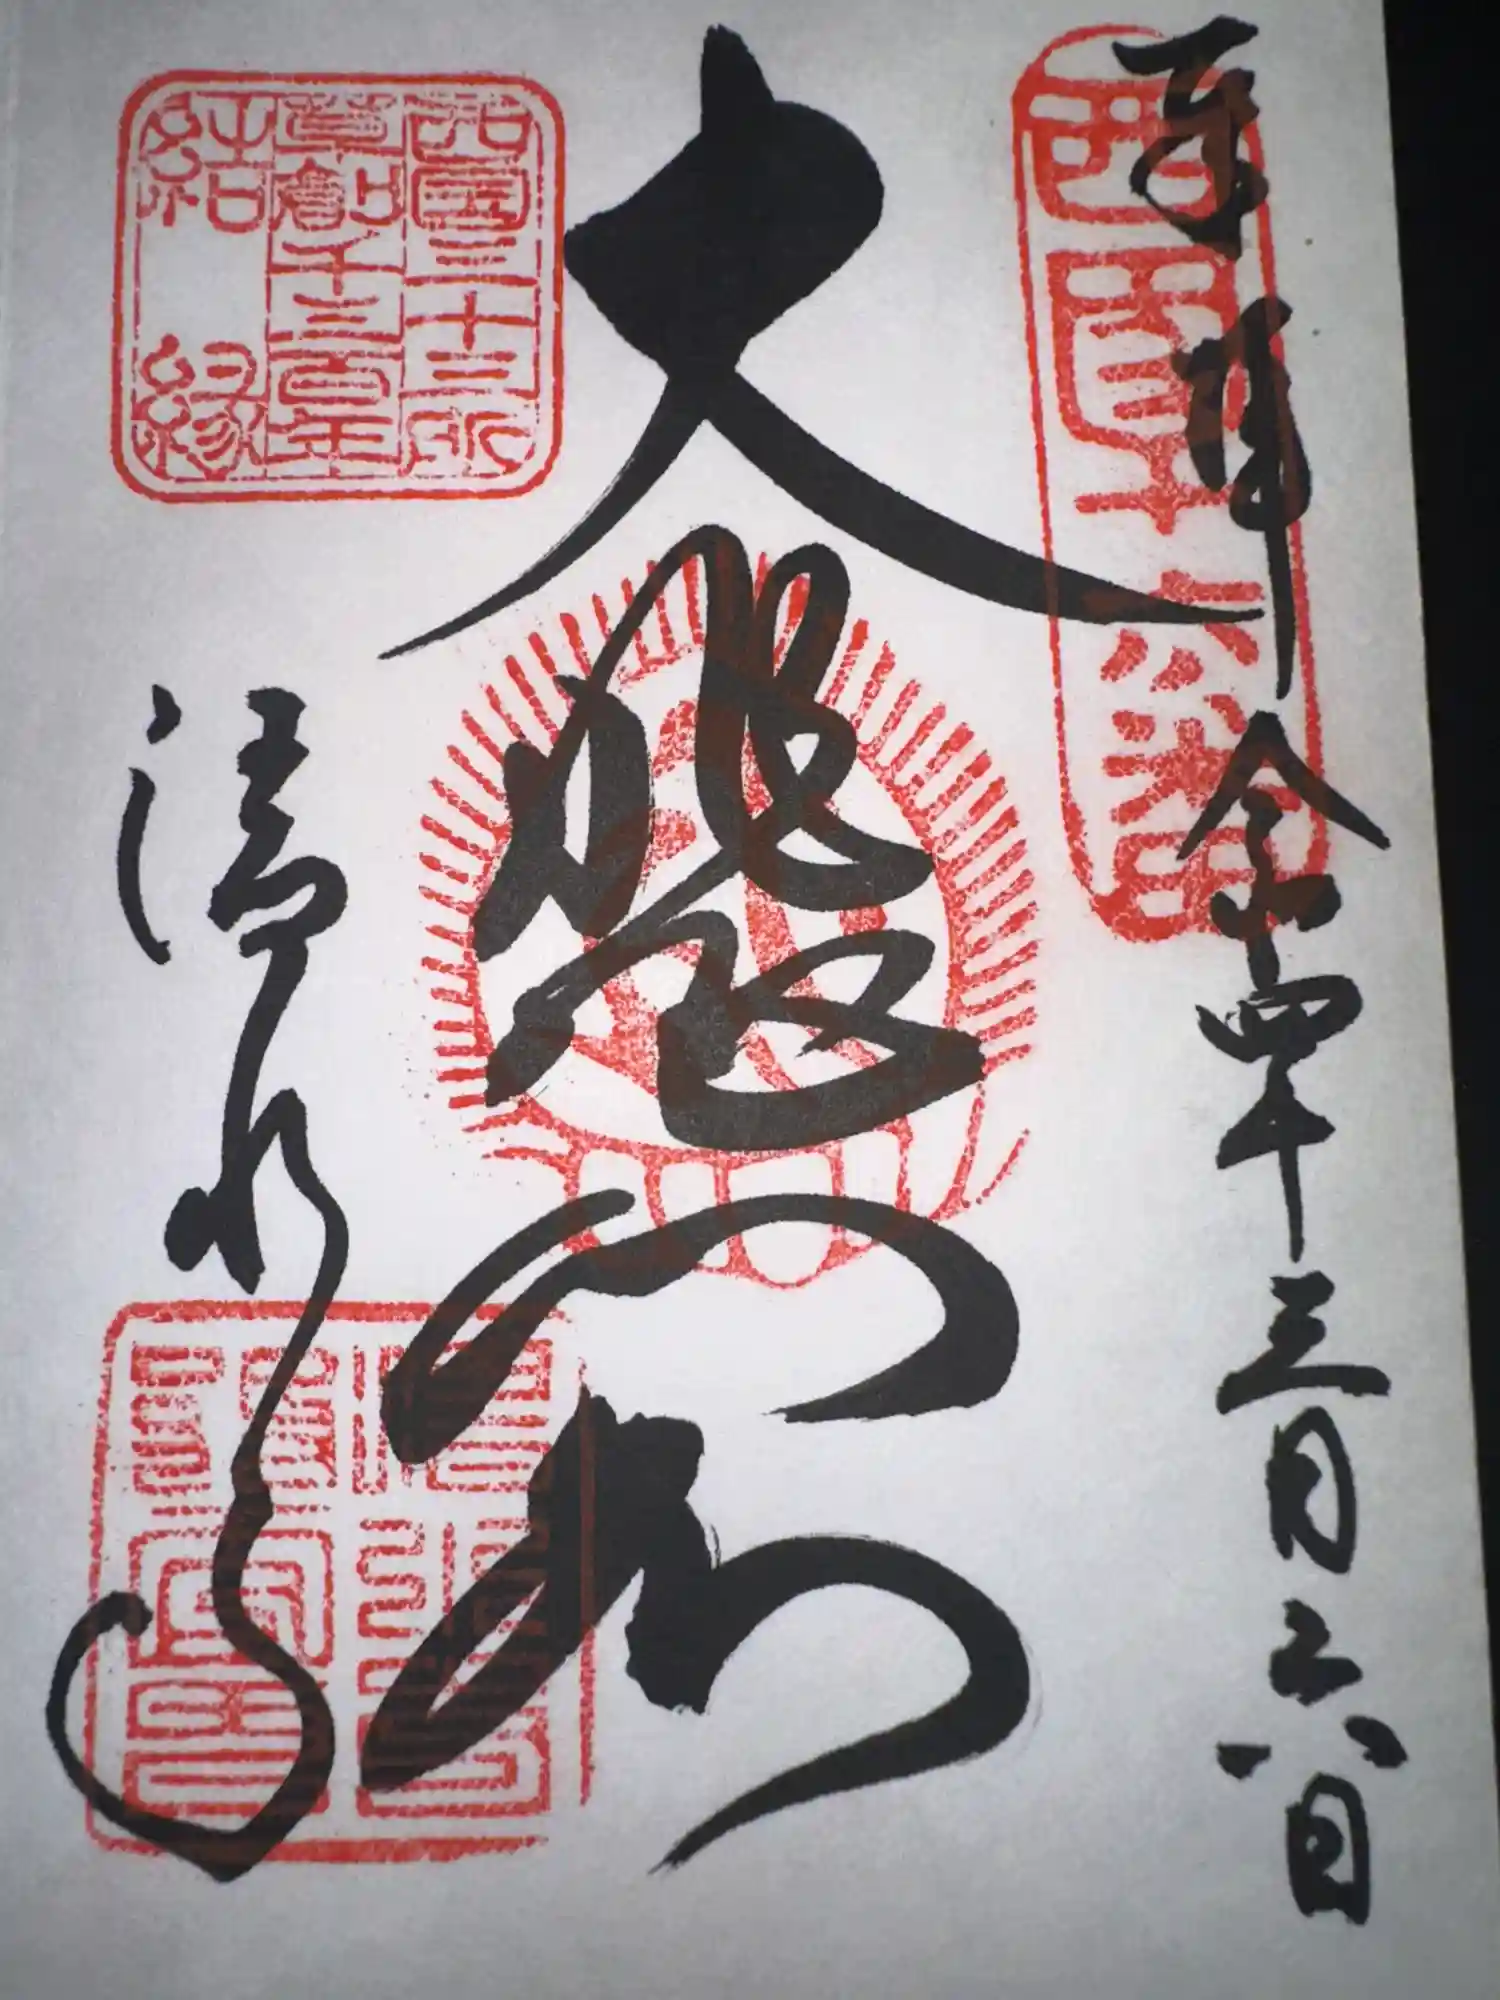 奉拝
西国十六番
令和四年三月六日
大悲閣
西国三十三所
草創千三百年
結縁
清水寺